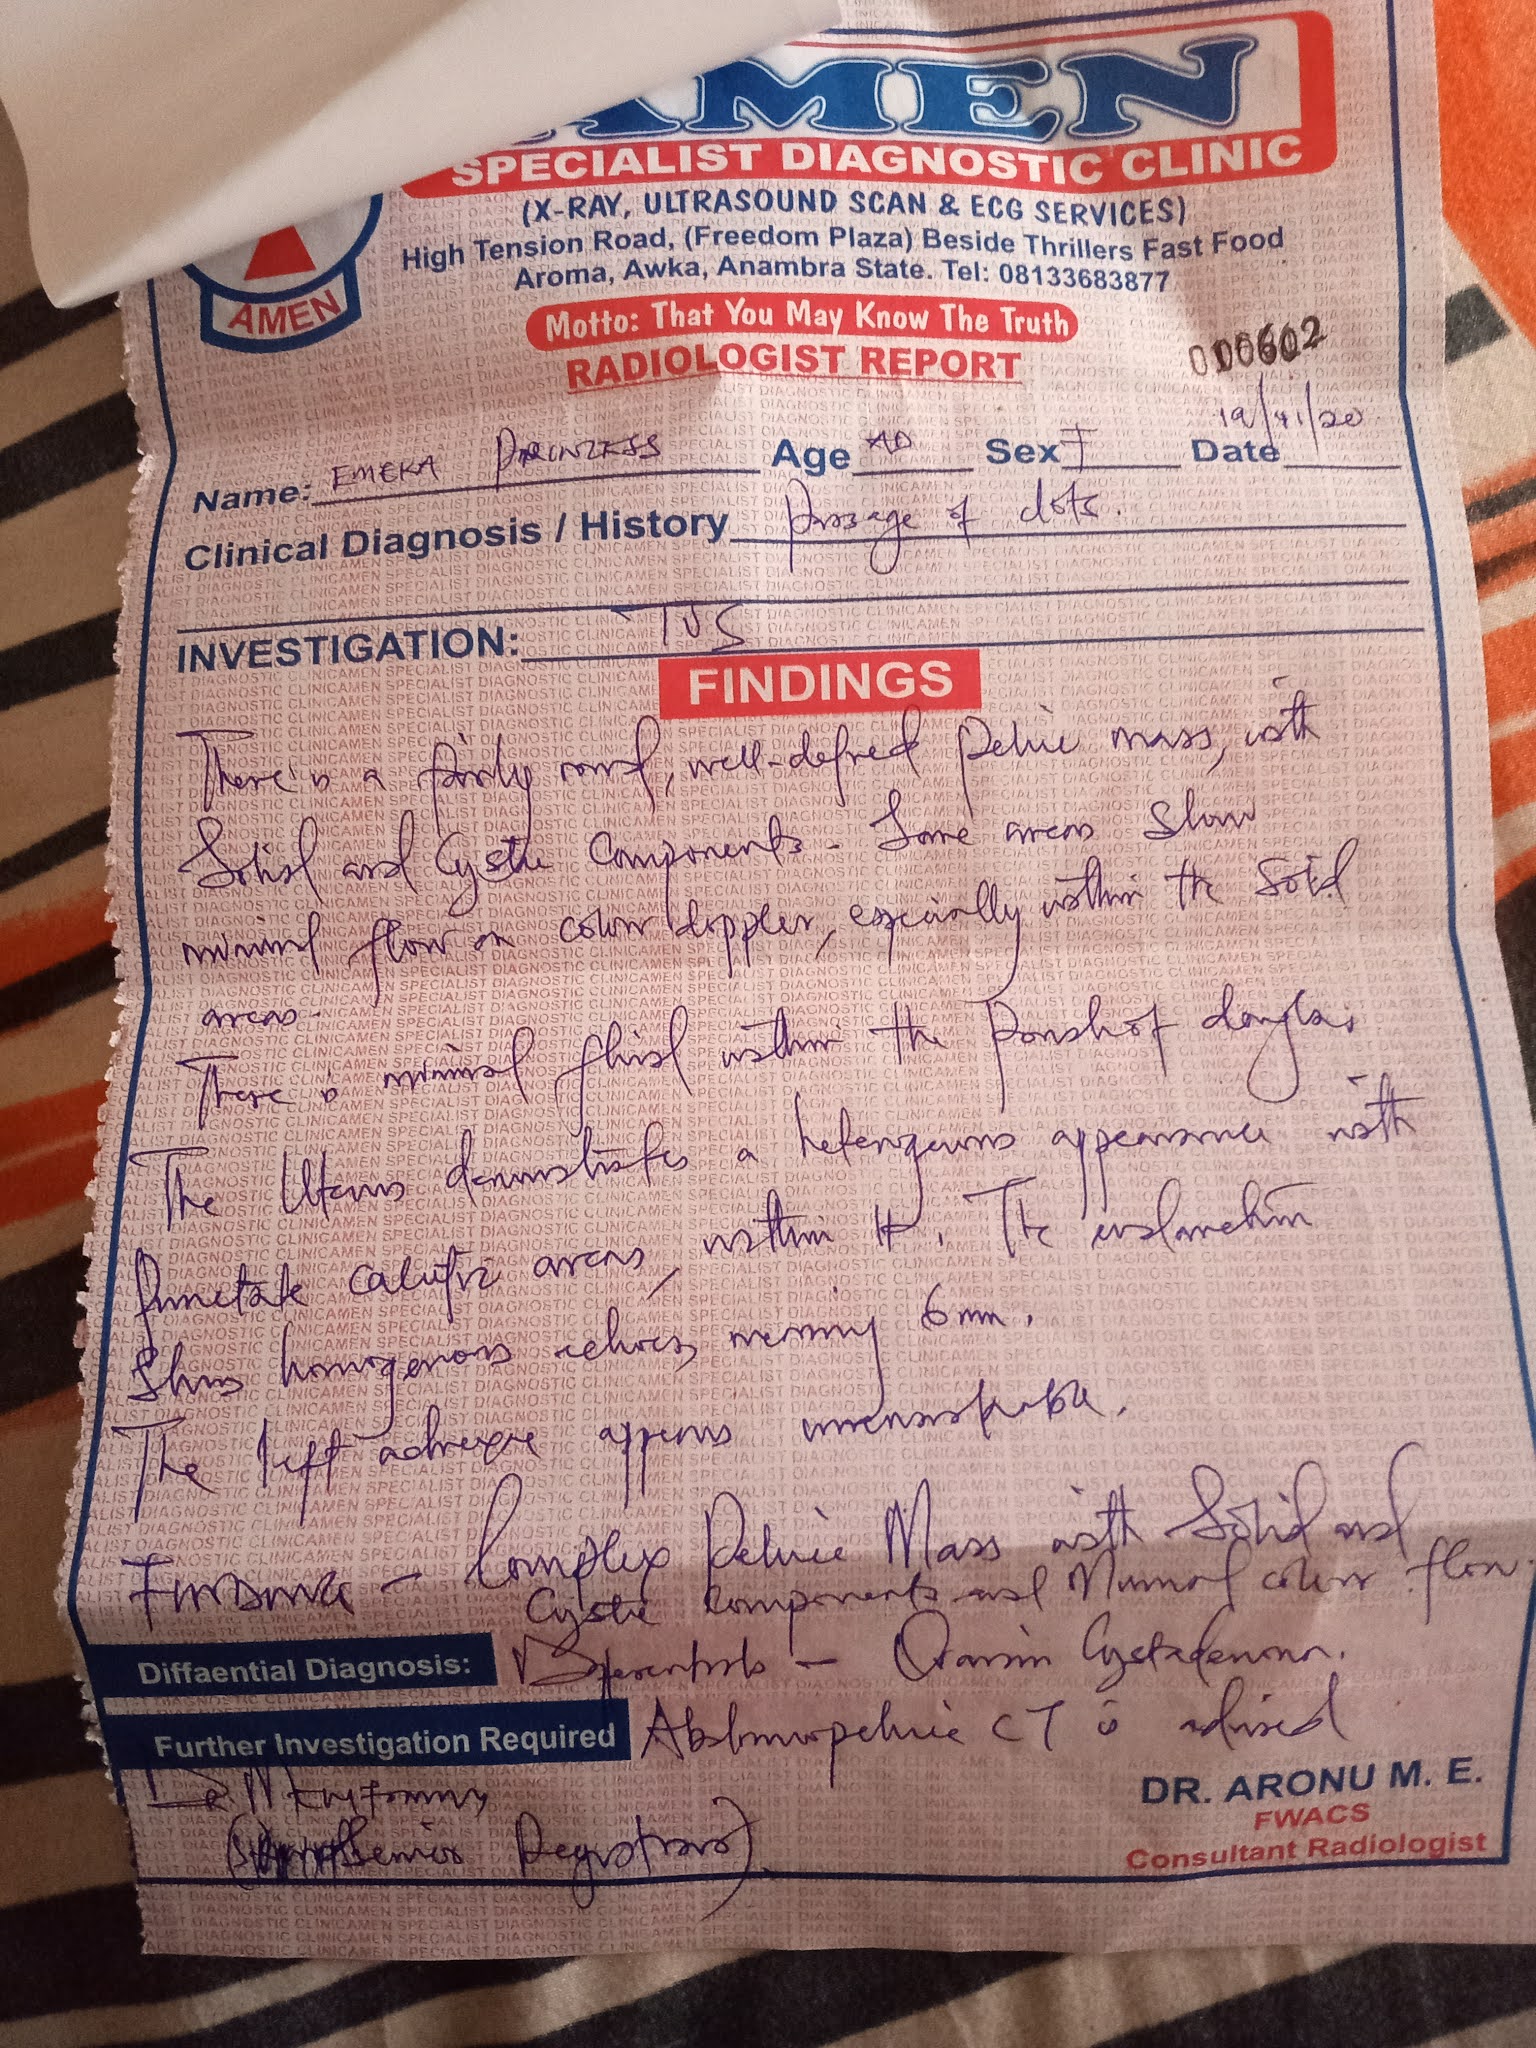 AMEN
SPECIALIST DIAGNOSTIC CLINIC
(X-RAY, ULTRASOUND SCAN & ECG SERVICES)
High Tension Road, (Freedom Plaza) Beside Thrillers Fast Food
Aroma, Awka, Anambra State. Tel: 08133683877
AMEN
Motto: That You May Know The Truth
RADIOLOGIST REPORT
000602
Name: EMEKA PRINZESS Age AD Sex F Date 19/11/20
Clinical Diagnosis / History Passage of clots.
INVESTIGATION: TVS
FINDINGS
There is a fairly round, well-defined pelvic mass, with
Solid and Cystic Components. Some areas show
minimal flow on colour doppler, especially within the solid
areas.
There is minimal fluid within the Pouch of douglas.
The Uterus demonstrates a heterogenous appearance with
punctate calcific areas, within it. The endometrium
shows homogenous echoes, measuring 6mm.
The left adnexae appears unremarkable.
Complex Pelvic Mass with Solid and
Cystic Components and Minimal colour flow.
Diffaential Diagnosis: Differentials - Ovarian Cystadenoma.
Further Investigation Required Abdominopelvic CT is advised
DR. ARONU M. E.
FWACS
Consultant Radiologist
Senior Registrar)